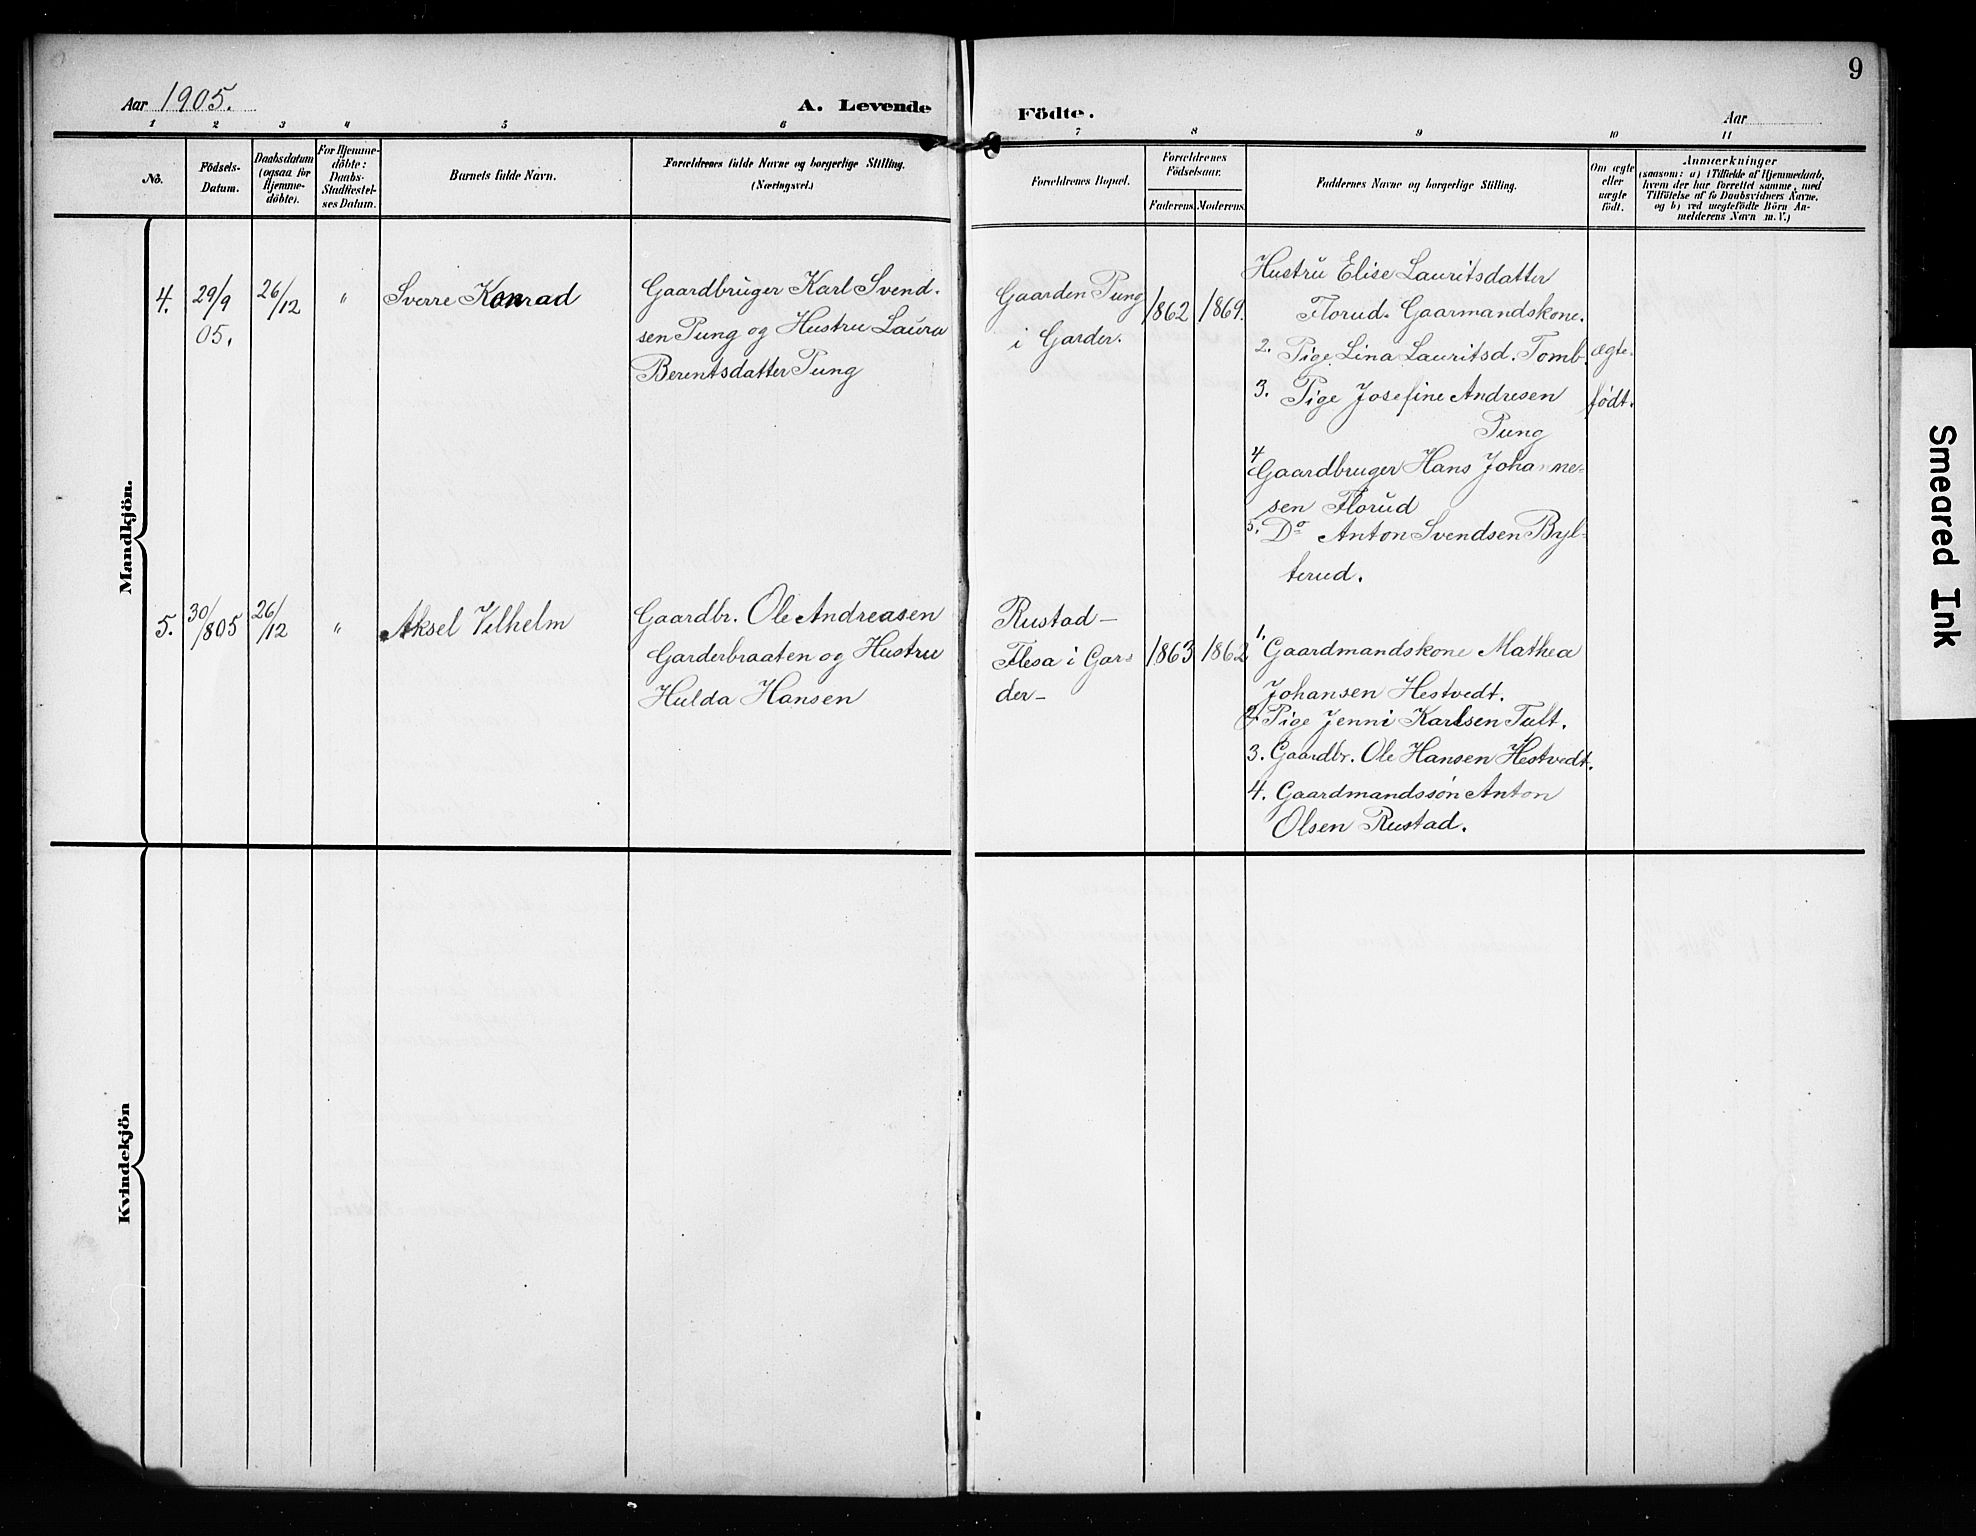 9
Aar 1905.
A. Levende Födte.
Aar
1 2 3 4 5 6 7 8 9 10 11
No.
Födsels-
Datum.
Daabsdatum
(ogsaa for
Hjemme-
döbte).
For Hjemme-
döbte:
Daabs-
Stadfæstel-
ses Datum.
Barnets fulde Navn.
Forældrenes fulde Navne og borgerlige Stilling.
(Næringsvei.)
Forældrenes Bopæl.
Forældrenes
Födselsaar.
Faderens Moderens
Faddernes Navne og borgerlige Stilling.
Om ægte
eller
uægte
födt.
Anmærkninger
(saasom: a) i Tilfælde af Hjemmedaab,
hvem der har forrettet samme, med
Tilföielse af to Daabsvidners Navne.
og b) ved uægtefödte Börn An-
melderens Navn m. V.)
Mandkjön.
4.
29/9
05.
26/12
"
Sverre Konrad
Gaardbruger Karl Svend-
sen Pung og Hustru Laura
Berentsdatter Pung
Gaarden Pung
i Garder.
1862
1869.
Hustru Elise Lauritsdatter
Florud. Gaarmandskone.
2. Pige Lina Lauritsd. Tomb.
3. Pige Josefine Andresen
Pung
4 Gaardbruger Hans Johanne-
sen Florud
5. Do Anton Svendsen Byl-
terud.
ægte-
født.
5.
30/805
26/12
"
Aksel Vilhelm
Gaardbr. Ole Andreasen
Garderbraaten og Hustru
Hulda Hansen
Rustad-
Flesa i Gar-
der-
1863
1862
1. Gaardmandskone Mathea
Johansen Hestvedt.
2. Pige Jenni Karlsen Tult.
3. Gaardbr. Ole Hansen Hestvedt.
4. Gaardmandssøn Anton
Olsen Rustad.
Kvindekjön
Smeared Ink